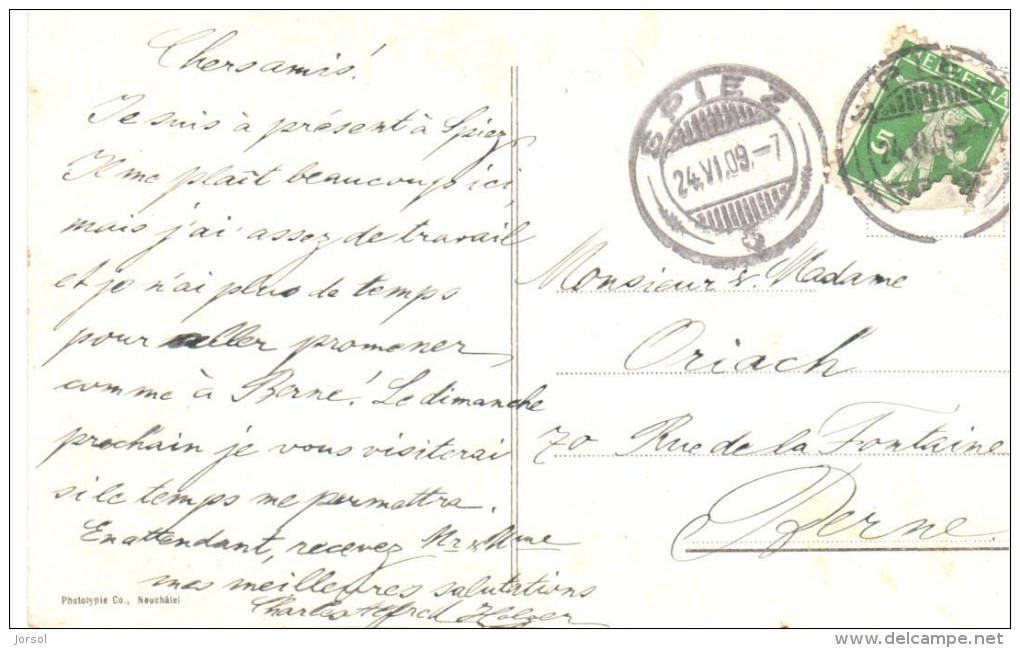 Chers amis!
Je suis à présent à Spiez,
Il me plaît beaucoup ici,
mais j'ai assez de travail
et je n'ai plus de temps
pour aller promener,
comme à Berne! Le dimanche
prochain je vous visiterai
si le temps me permettra.
En attendant, recevez Mr & Mme
mes meilleures salutations
Charles Alfred Holzer
Phototypie Co., Neuchâtel
SPIEZ
24.VI.09.-7
HELVETIA
5
Monsieur & Madame
Oriach
70 Rue de la Fontaine
Berne.
Jorsol
delcampe.net